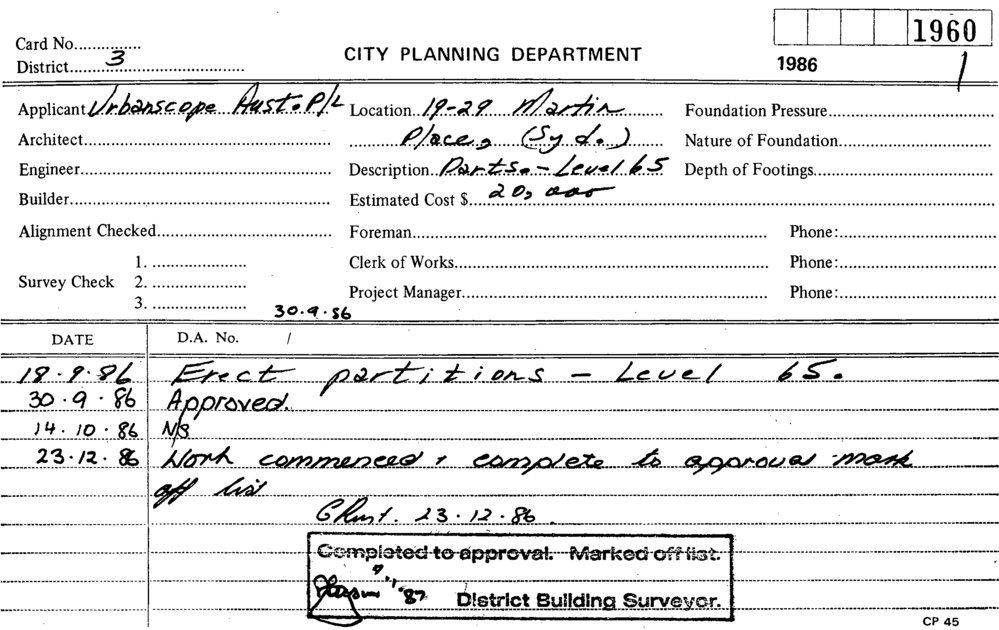 1960
Card No...............
CITY PLANNING DEPARTMENT
District 3
1986
Applicant Urbanscope Aust. P/L Location 19-29 Martin Foundation Pressure
Architect Place, (Syd.) Nature of Foundation
Engineer Description Parts. - Level 65 Depth of Footings
Builder Estimated Cost $ 20,000
Alignment Checked Foreman Phone:
1. Clerk of Works Phone:
Survey Check 2.
Project Manager Phone:
3.
30.9.86
DATE D.A. No. /
18.9.86 Erect partitions - Level 65.
30.9.86 Approved.
14.10.86 NS
23.12.86 Work commenced & complete to approval mark
off list
23.12.86.
Completed to approval. Marked off list.
District Building Surveyor.
CP 45